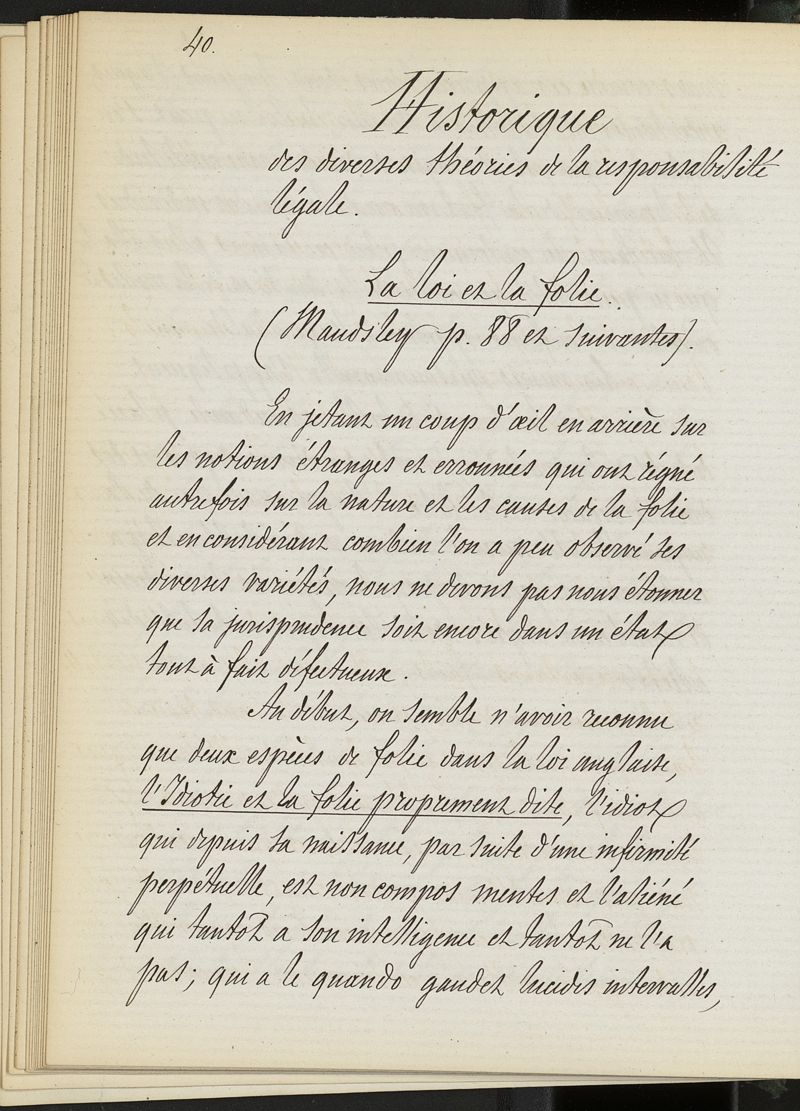 40.
Historique
des diverses théories de la responsabilité
légale.
La loi et la folie.
(Maudsley p. 88 et suivantes).
En jetant un coup d'œil en arrière sur
les notions étranges et erronnées qui ont régné
autrefois sur la nature et les causes de la folie
et en considérant combien l'on a peu observé ses
diverses variétés, nous ne devons pas nous étonner
que sa jurisprudence soit encore dans un état
tout à fait défectueux.
Au début, on semble n'avoir reconnu
que deux espèces de folie dans la loi anglaise,
l'Idiotie et la folie proprement dite, l'idiot
qui depuis sa naissance, par suite d'une infirmité
perpétuelle, est non compos mentes et l'aliéné
qui tantôt a son intelligence et tantôt ne l'a
pas; qui a le quando gaudet lucides intervalles,